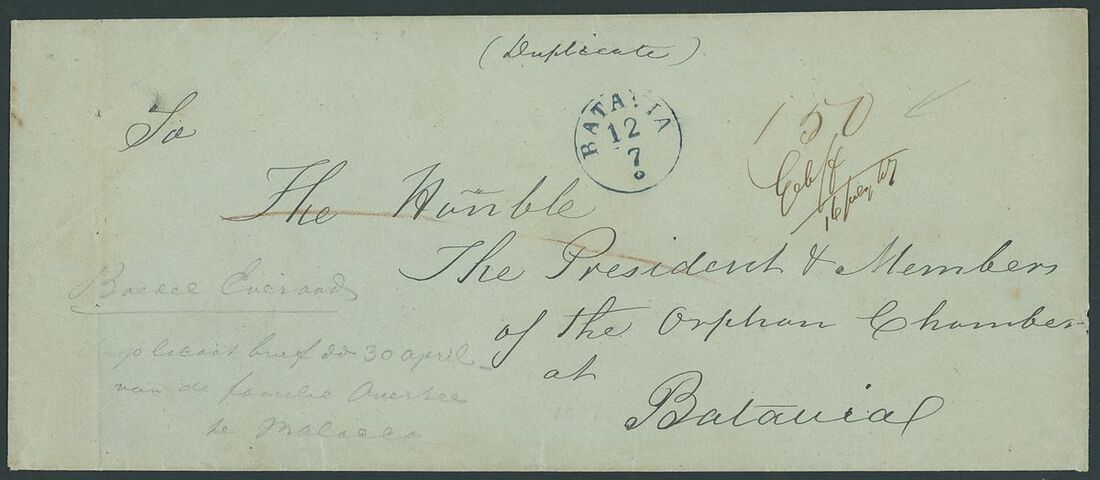 (Duplicate)
To
BATAVIA
12
7
150
16 July 67
The Honble
The President & Members
of the Orphan Chamber
at
Batavia
Everaad
brief dd 30 april
van de familie Overree
te Malacca